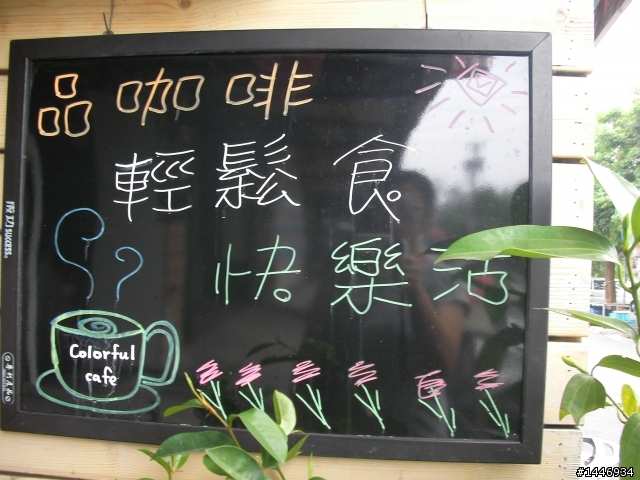 品咖啡
輕鬆食
快樂活
Colorful
cafe
success.
#1446934